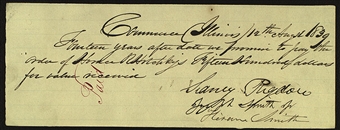 Commerce Illinois 12th Augt 1839
Fourteen years after date we promise to pay the
order of Horace R Hotchkiss Fifteen Hundred dollars
for value received
Paid
Sidney Rigdon
Joseph Smith Jr
Hirum Smith